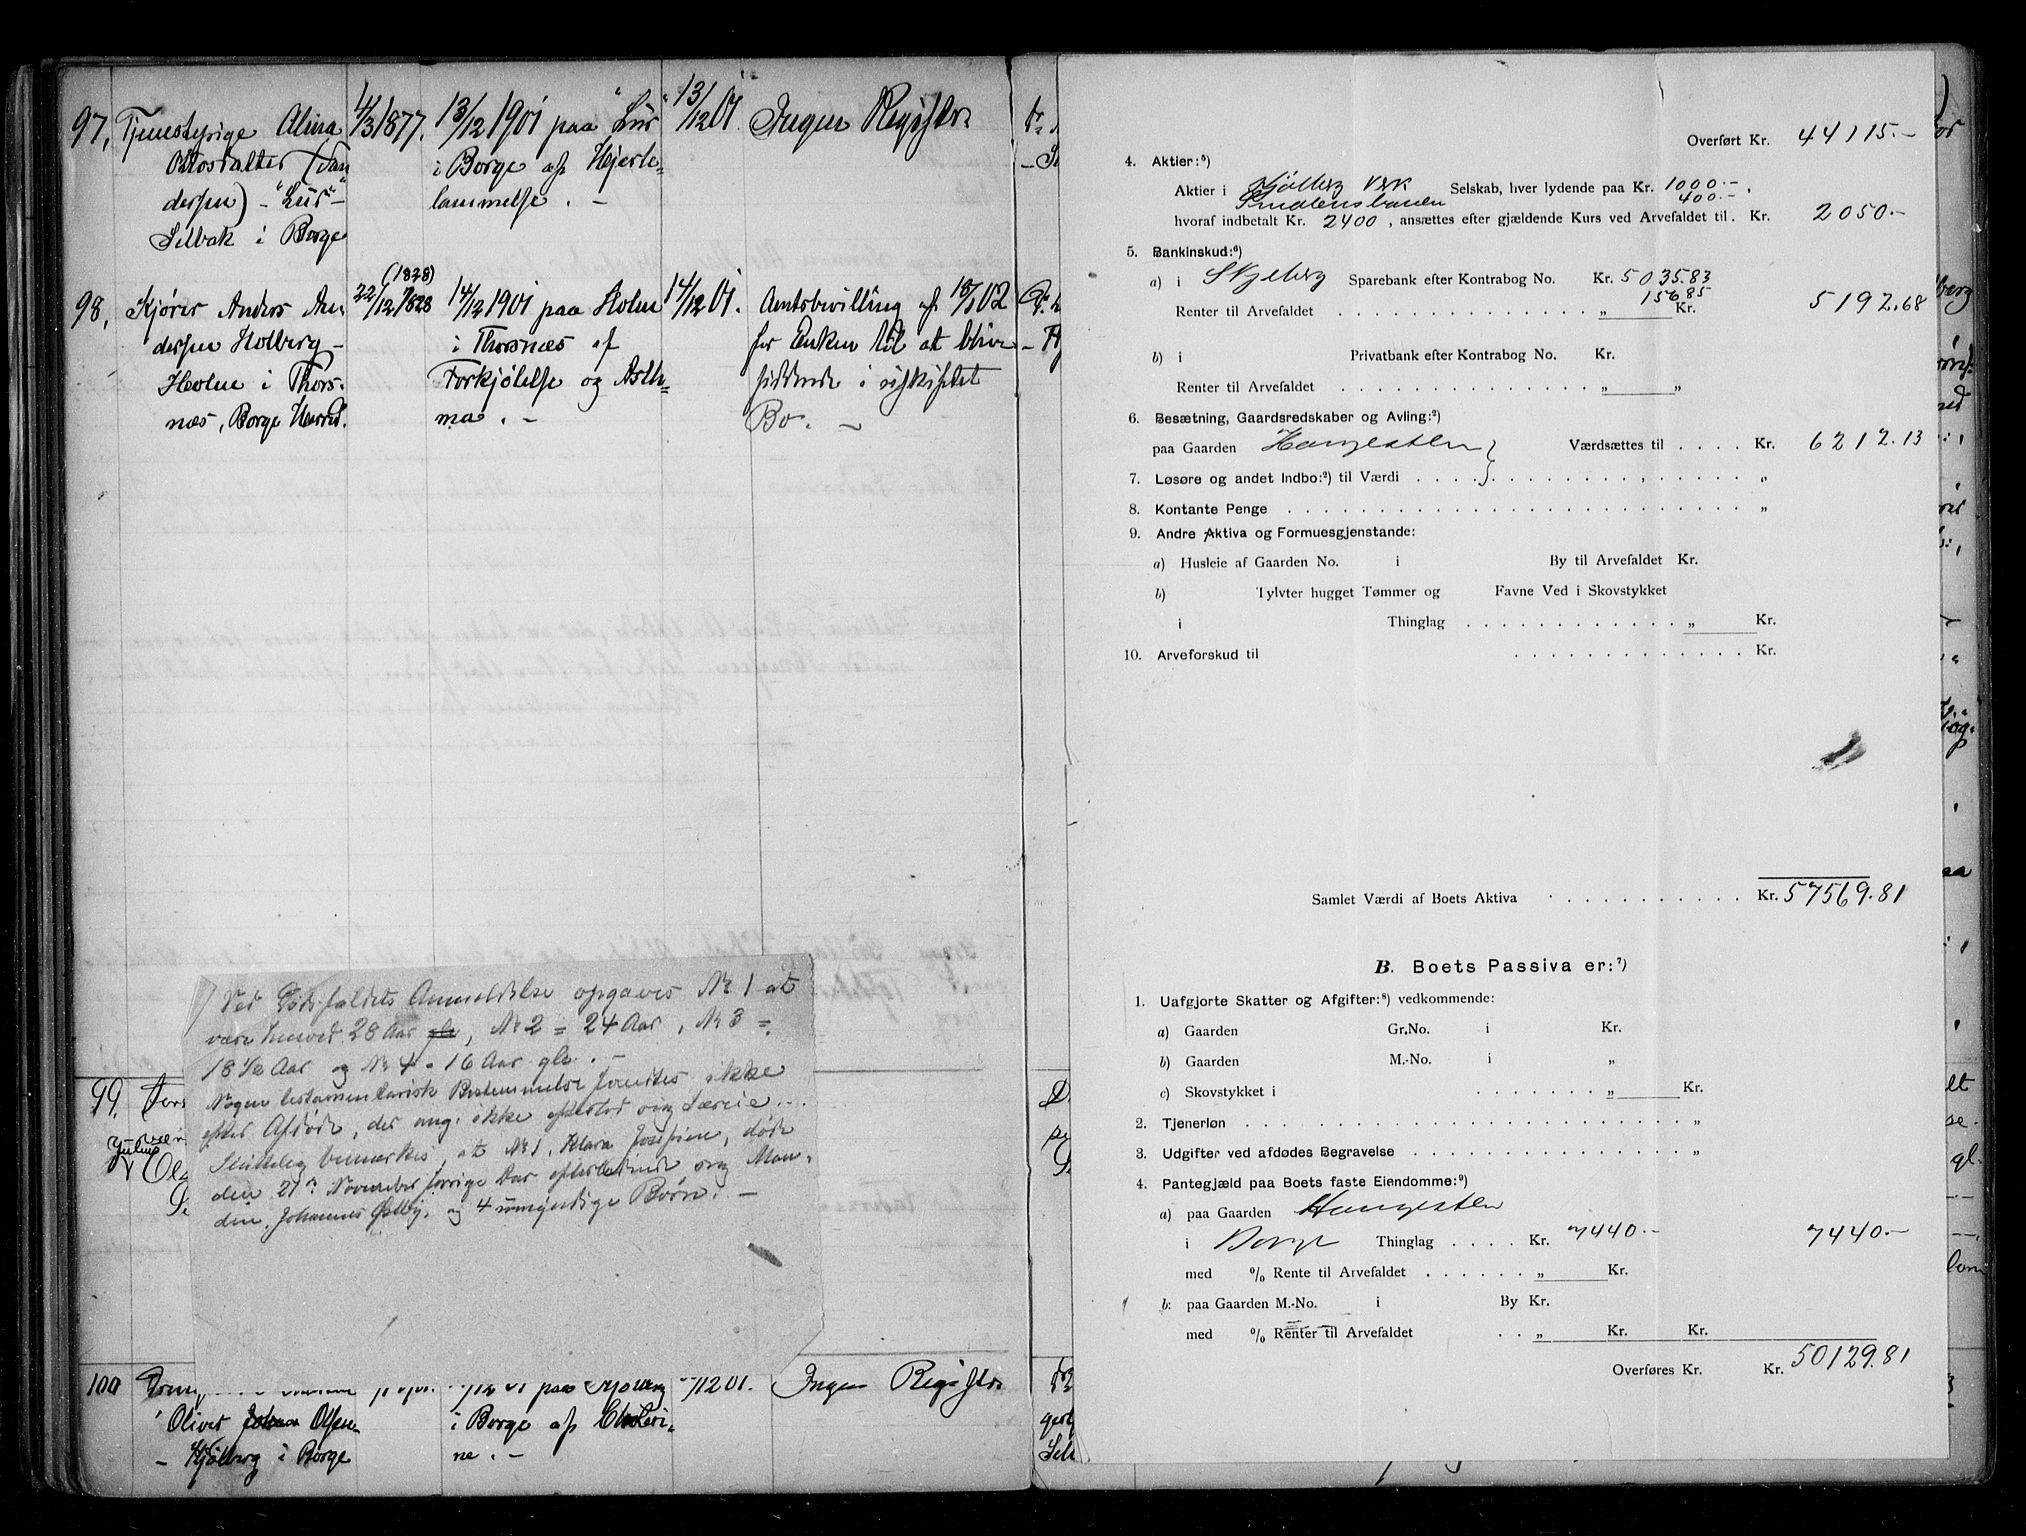 97, Tjenestepige Alina 4/3 1877. 13/12 1901 paa "Lür" 13/12 01. Ingen Registr.
i Borge af Hjerte-
dersen) - "Lür" - lammelse. -
Selbak i Borge
(1828)
98, Kjører Anders An- 22/12 1828 14/12 1901 paa Holm 14/12 01. Amtsbevilling af 18/1 02
dersen Holberg - i Thorsnæs af for Enken til at blive
Holm i Thors- Forkjølelse og Asth- siddende i uskiftet
næs, Borge Herred. ma. - Bo. -
Ved Dødsfaldets Anmeldelse opgaves No 1 at
være henved 28 Aar, No 2 = 24 Aar, No 3 =
18 1/2 Aar og No 4 = 16 Aar gl. -
Nogen testamentarisk Bestemmelse fandtes ikke
efter Afdøde, der ang. ikke efterlod sig Særeie. -
Sluttelig bemerkes, at No 1, Klara Josefine, døde
den 21de November forrige Aar efterladende sig Man-
den, Johannes Østby, og 4 umyndige Børn. -
99.
100 12 01 paa Kjølberg 12 01. Ingen Registr.
Oliver Johan Olsen i Borge af Choleri-
- Kjølberg i Borge ne. -
Overført Kr. 44115.-
4. Aktier:⁵)
Aktier i Kjølberg Vrk Selskab, hver lydende paa Kr. 1000.-,
Smalensbanen 400.-
hvoraf indbetalt Kr. 2400, ansættes efter gjældende Kurs ved Arvefaldet til. Kr. 2050.-
5. Bankinskud:⁶)
a) i Skjeberg Sparebank efter Kontrabog No. Kr. 5035.83
Renter til Arvefaldet . . . . „ 156.85 Kr. 5192.68
b) i Privatbank efter Kontrabog No. Kr.
Renter til Arvefaldet . . . . „ „
6. Besætning, Gaardsredskaber og Avling:²)
paa Gaarden Haugesten } Værdsættes til . . . . Kr. 6212.13
7. Løsøre og andet Indbo:²) til Værdi . . . . „
8. Kontante Penge . . . . „
9. Andre Aktiva og Formuesgjenstande:
a) Husleie af Gaarden No. i By til Arvefaldet Kr.
b) Tylvter hugget Tømmer og Favne Ved i Skovstykket
i Thinglag . . . . „ Kr.
10. Arveforskud til . . . . Kr.
Samlet Værdi af Boets Aktiva . . . . Kr. 57569.81
B. Boets Passiva er:⁷)
1. Uafgjorte Skatter og Afgifter:⁸) vedkommende:
a) Gaarden Gr.No. i Kr.
b) Gaarden M.-No. i „
c) Skovstykket i . . . . „ Kr.
2. Tjenerløn . . . . „
3. Udgifter ved afdødes Begravelse . . . . „
4. Pantegjæld paa Boets faste Eiendomme:⁹)
a) paa Gaarden Haugesten
i Borge Thinglag . . . . Kr. 7440.- 7440.-
med % Rente til Arvefaldet . . . . „ Kr.
b: paa Gaarden M.-No. i By Kr.
med % Renter til Arvefaldet . . „ Kr. Kr.
Overføres Kr. Kr. 50129.81